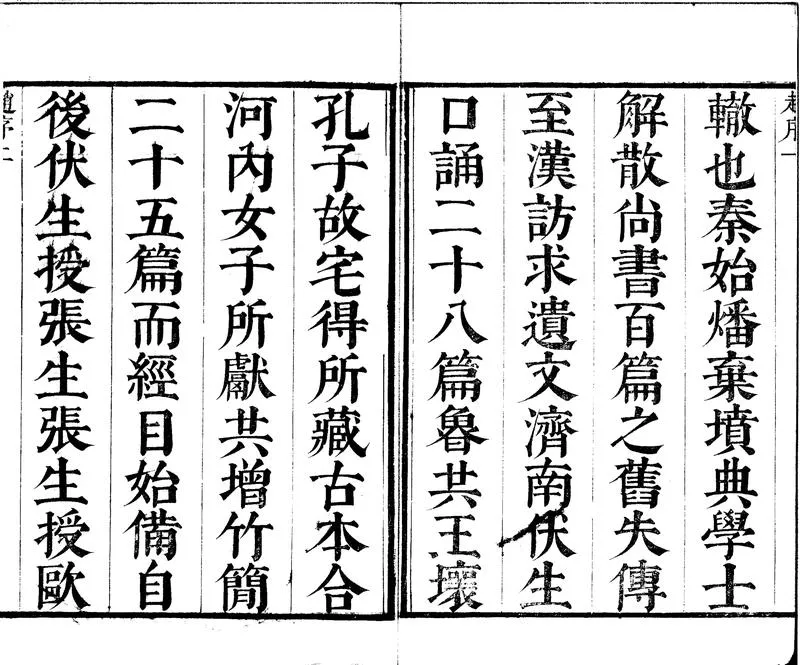 趙序一
轍也秦始燔棄墳典學士
解散尚書百篇之舊失傳
至漢訪求遺文濟南伏生
口誦二十八篇魯共王壞
孔子故宅得所藏古本合
河內女子所獻共增竹簡
二十五篇而經目始備自
後伏生授張生張生授歐
趙序二